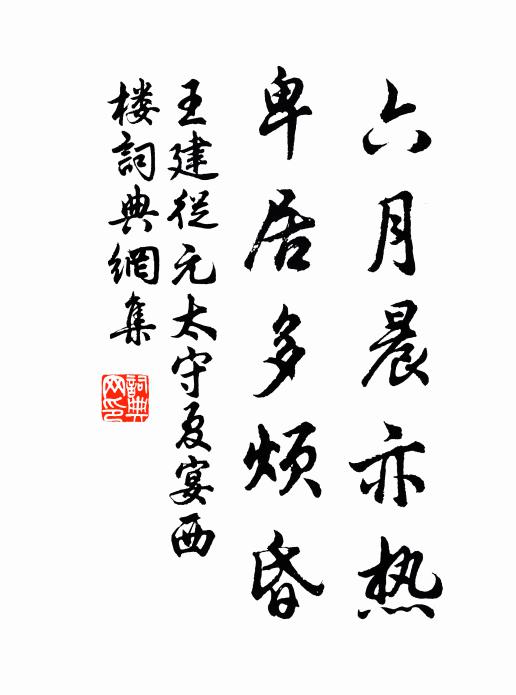 六月晨亦热
卑居多烦昏
王建従元太守夏宴西
楼詞典網集
詞典
网印